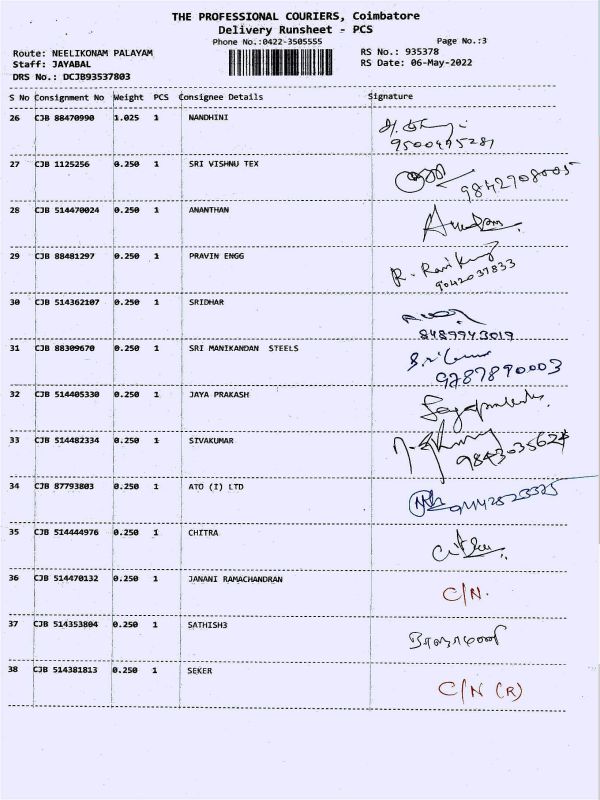 THE PROFESSIONAL COURIERS, Coimbatore
Delivery Runsheet - PCS
Phone No.:0422-3505555
Page No.:3
Route: NEELIKONAM PALAYAM
RS No.: 935378
Staff: JAYABAL
RS Date: 06-May-2022
DRS No.: DCJB93537803
S No Consignment No Weight PCS Consignee Details Signature
26 CJB 88470990 1.025 1 NANDHINI
9500495281
27 CJB 1125256 0.250 1 SRI VISHNU TEX
9842908005
28 CJB 514470024 0.250 1 ANANTHAN
29 CJB 88481297 0.250 1 PRAVIN ENGG
9042037833
30 CJB 514362107 0.250 1 SRIDHAR
8489943019
31 CJB 88309670 0.250 1 SRI MANIKANDAN STEELS
9787890003
32 CJB 514405330 0.250 1 JAYA PRAKASH
33 CJB 514482334 0.250 1 SIVAKUMAR
34 CJB 87793803 0.250 1 ATO (I) LTD
35 CJB 514444976 0.250 1 CHITRA
36 CJB 514470132 0.250 1 JANANI RAMACHANDRAN C/N.
37 CJB 514353804 0.250 1 SATHISH3
38 CJB 514381813 0.250 1 SEKER C/N (R)